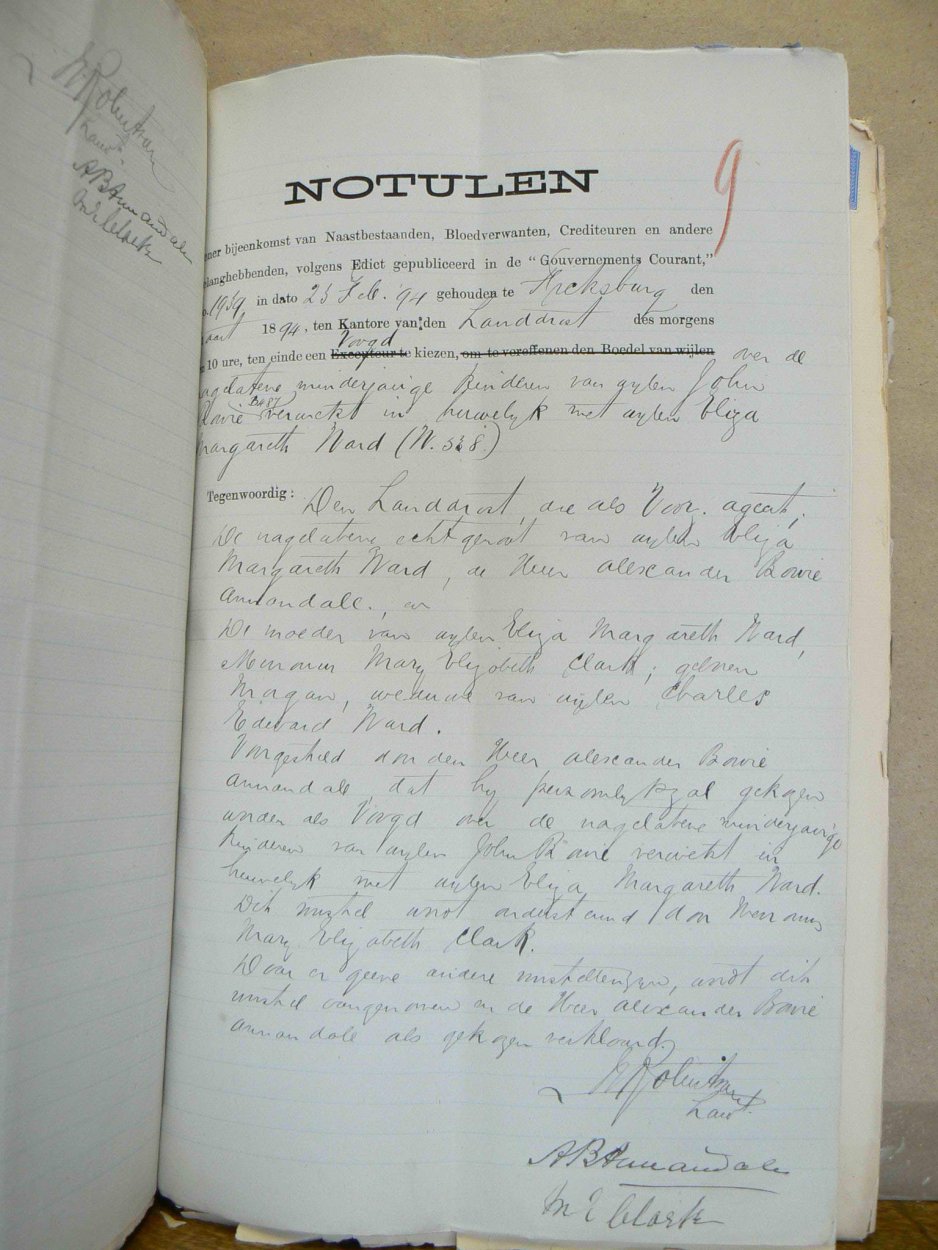 Robertson
Land.
A B Annandale
M E Clark
9
NOTULEN
ener bijeenkomst van Naastbestaanden, Bloedverwanten, Crediteuren en andere
elanghebbenden, volgens Edict gepubliceerd in de "Gouvernements Courant,"
o. 1939 in dato 23 Feb. '94 gehouden te Ficksburg den
aart 1894, ten Kantore van den Landdrost des morgens
10 ure, ten einde een Executeur te Voogd kiezen, om te vereffenen den Boedel van wijlen over de
nagelatene minderjarige kinderen van wylen John
Bowie B487 verwekt in huwelyk met wylen Eliza
Margareth Ward (W. 538.)
Tegenwoordig: Den Landdrost, die als Voor. ageert;
De nagelatene echtgenoot van wylen Eliza
Margareth Ward, de Heer Alexander Bowie
Annandale, en
De moeder van wylen Eliza Margareth Ward,
Mevrouw Mary Elizabeth Clark; geboren
Morgan, weduwe van wylen Charles
Edward Ward.
Voorgesteld door den Heer Alexander Bowie
Annandale dat hy persoonlyk zal gekozen
worden als Voogd over de nagelatene minderjarige
kinderen van wylen John Bowie verwekt in
huwelyk met wylen Eliza Margareth Ward.
Dit voorstel word ondersteund door Mevrouw
Mary Elizabeth Clark.
Daar er geene andere voorstellingen, word dit
voorstel aangenomen en de Heer Alexander Bowie
Annandale als gekozen verklaard.
Robertson
Land.
A B Annandale
M E Clark